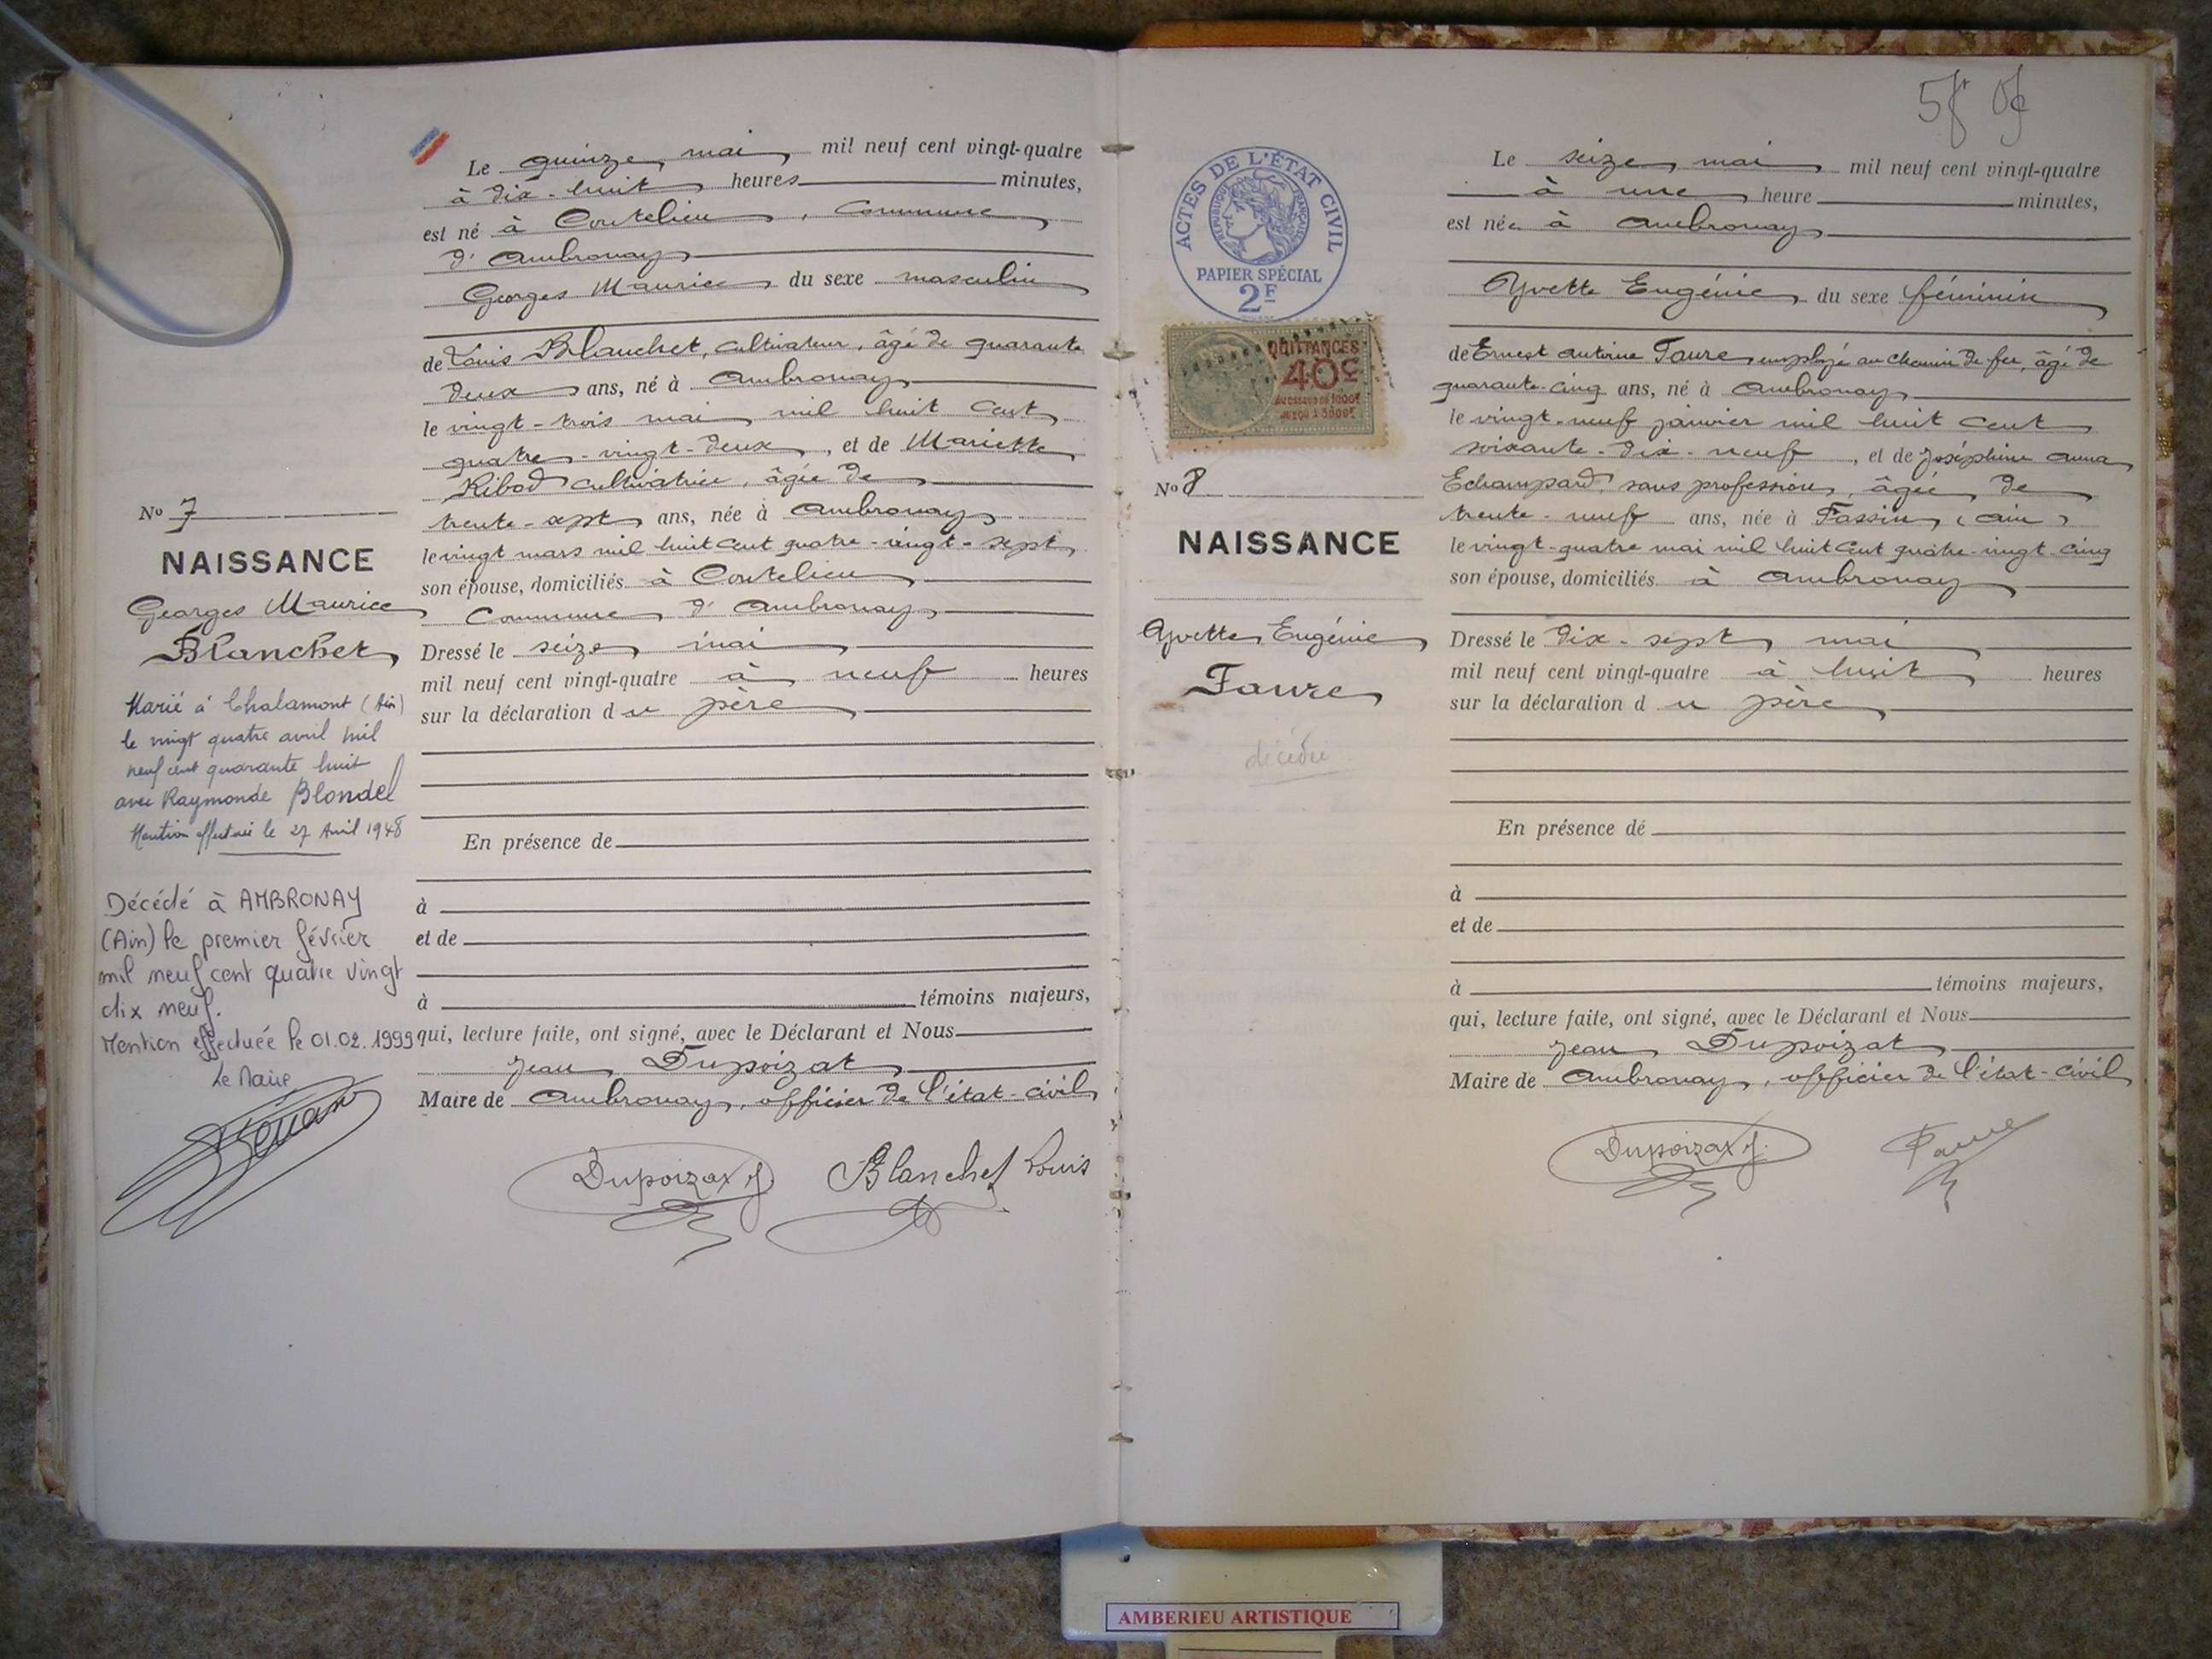 Le quinze mai mil neuf cent vingt-quatre
à dix-huit heures minutes,
est né à Coutelieu, Commune
d'Ambronay
Georges Maurice du sexe masculin
de Louis Blanchet, cultivateur, âgé de quarante
deux ans, né à Ambronay
le vingt-trois mai mil huit cent
quatre-vingt-deux, et de Mariette
Ribod cultivatrice, âgée de
trente-sept ans, née à Ambronay
le vingt mars mil huit cent quatre-vingt-sept
son épouse, domiciliés à Coutelieu
Commune d'Ambronay
Dressé le seize mai
mil neuf cent vingt-quatre à neuf heures
sur la déclaration du père
En présence de
à
et de
à témoins majeurs,
qui, lecture faite, ont signé, avec le Déclarant et Nous
Jean Dupoizat
Maire de Ambronay, officier de l'état-civil
Dupoizat J. Blanchet Louis
No 7
NAISSANCE
Georges Maurice
Blanchet
Marié à Chalamont (Ain)
le vingt quatre avril mil
neuf cent quarante huit
avec Raymonde Blondel
Mention effectuée le 27 Avril 1948
Décédé à AMBRONAY
(Ain) le premier février
mil neuf cent quatre vingt
dix neuf.
Mention effectuée le 01.02.1999
Le Maire
ACTES DE L'ÉTAT CIVIL
RÉPUBLIQUE FRANÇAISE
PAPIER SPÉCIAL
2F
QUITTANCES
40c
No 8
NAISSANCE
Yvette Eugénie
Faure
décédée
Le seize mai mil neuf cent vingt-quatre
à une heure minutes,
est née à Ambronay
Yvette Eugénie du sexe féminin
de Ernest Antoine Faure employé au chemin de fer, âgé de
quarante-cinq ans, né à Ambronay
le vingt-neuf janvier mil huit cent
soixante-dix-neuf, et de Joséphine Anna
Echampard, sans profession, âgée de
trente-neuf ans, née à Fassin (Ain)
le vingt-quatre mai mil huit cent quatre-vingt-cinq
son épouse, domiciliés à Ambronay
Dressé le dix-sept mai
mil neuf cent vingt-quatre à huit heures
sur la déclaration du père
En présence de
à
et de
à témoins majeurs,
qui, lecture faite, ont signé, avec le Déclarant et Nous
Jean Dupoizat
Maire de Ambronay, officier de l'état-civil
Dupoizat J. Faure
AMBERIEU ARTISTIQUE